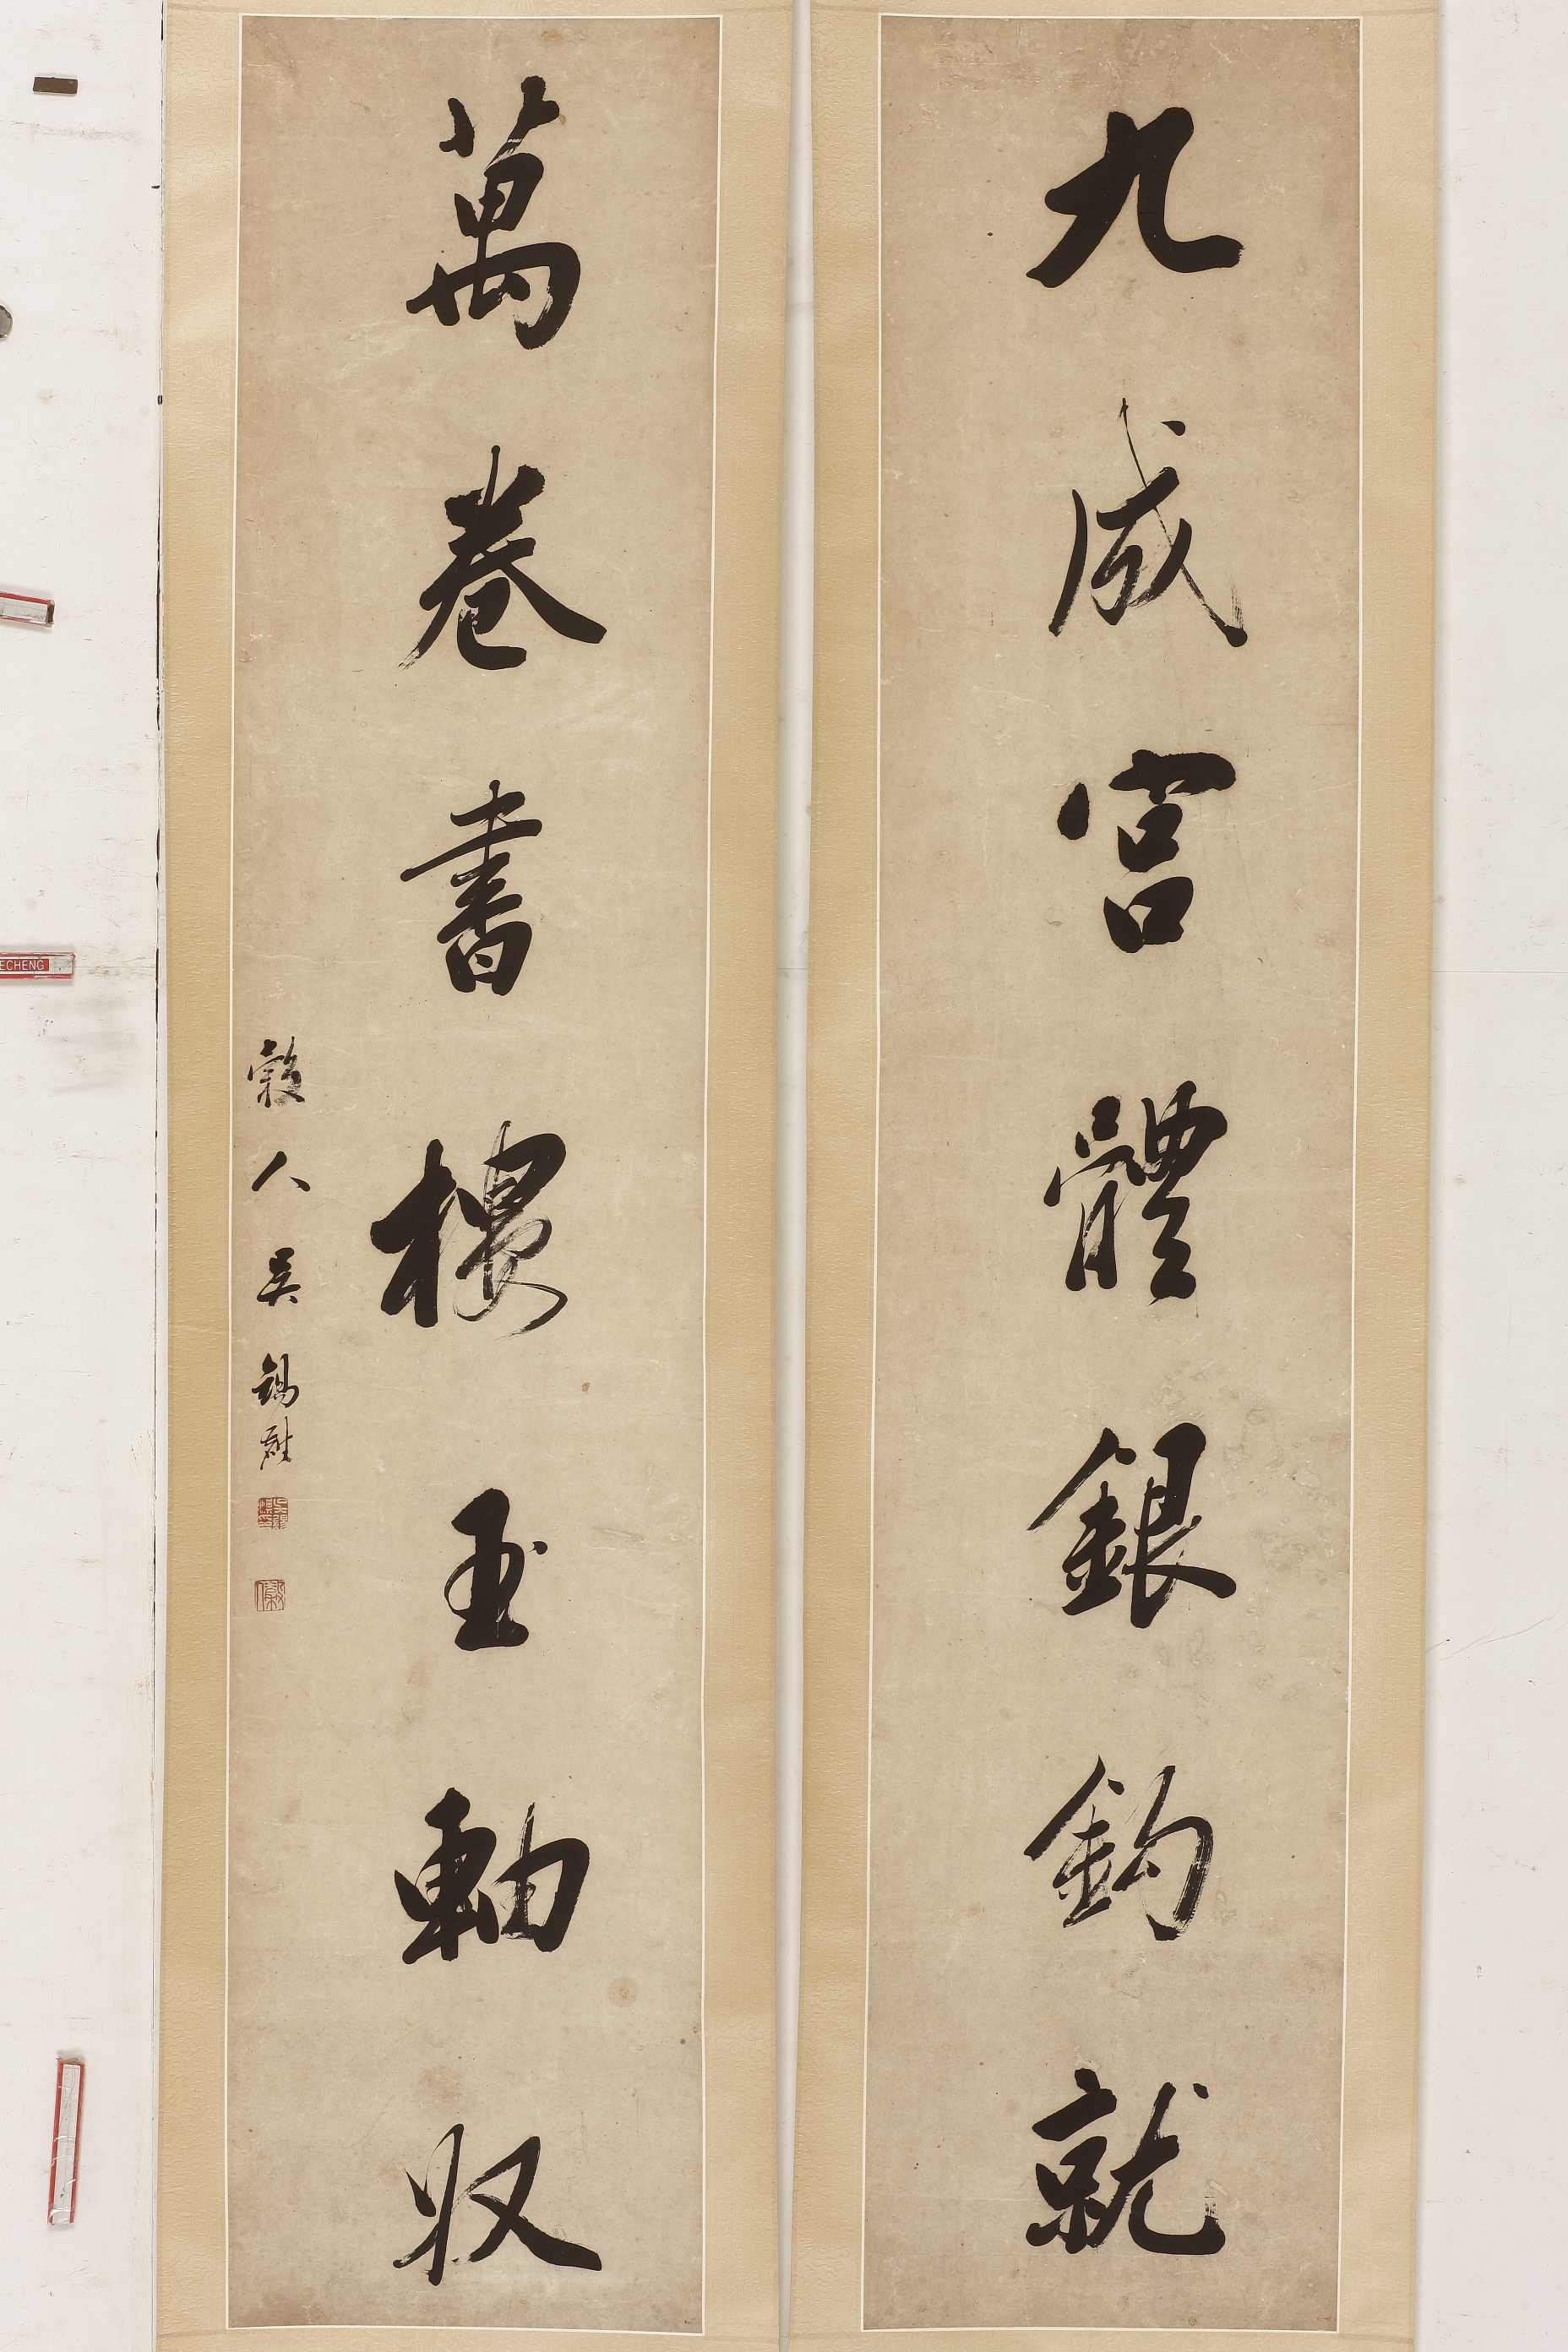 九成宮體銀鈎就
萬卷書樓玉軸収
穀人吳錫麒
ECHENG